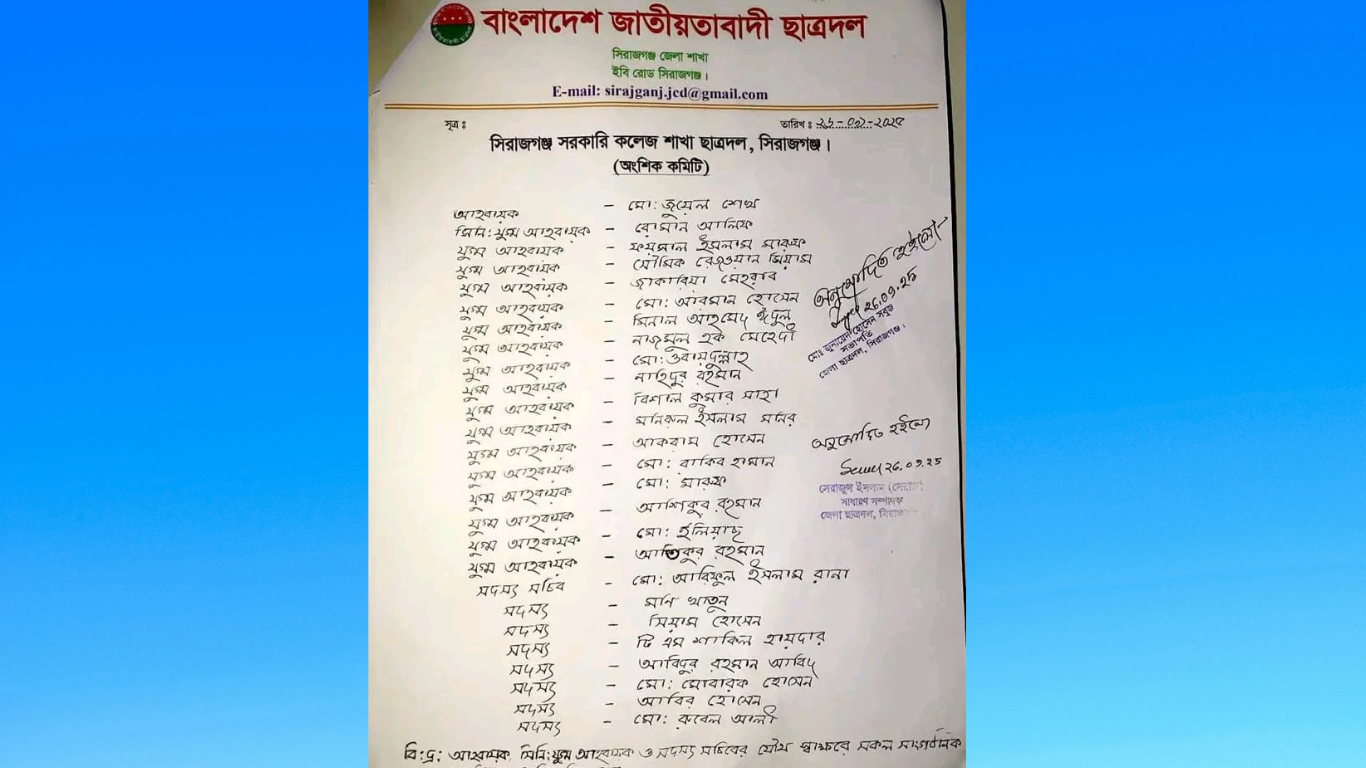 বাংলাদেশ জাতীয়তাবাদী ছাত্রদল
সিরাজগঞ্জ জেলা শাখা
ইবি রোড সিরাজগঞ্জ।
E-mail: sirajganj.jcd@gmail.com
সূত্র ঃ তারিখ ঃ ২৬-০৯-২০২৫
সিরাজগঞ্জ সরকারি কলেজ শাখা ছাত্রদল, সিরাজগঞ্জ।
(অংশিক কমিটি)
আহবায়ক – মো: জুয়েল শেখ
সিনি: যুগ্ম আহবায়ক – রোমান আলিফ
যুগ্ম আহবায়ক – ফয়সাল ইসলাম মারুফ
যুগ্ম আহবায়ক – সৌমিক রেজওয়ান সিয়াম
যুগ্ম আহবায়ক – জাকারিয়া মেহরাব
যুগ্ম আহবায়ক – মো: আরমান হোসেন
যুগ্ম আহবায়ক – মিনাল আহমেদ ঈদুল
যুগ্ম আহবায়ক – নাজমুল হক মেহেদী
যুগ্ম আহবায়ক – মো: ওবায়দুল্লাহ
যুগ্ম আহবায়ক – নাহিদুর রহমান
যুগ্ম আহবায়ক – বিশাল কুমার সাহা
যুগ্ম আহবায়ক – মনিরুল ইসলাম
যুগ্ম আহবায়ক – আকরাম হোসেন
যুগ্ম আহবায়ক – মো: রাকিব হাসান
যুগ্ম আহবায়ক – মো: মারুফ
যুগ্ম আহবায়ক – আশিকুর রহমান
যুগ্ম আহবায়ক – মো: ইলিয়াছ
যুগ্ম আহবায়ক – আতিকুর রহমান
সদস্য সচিব – মো: আরিফুল ইসলাম রানা
সদস্য – মনি খাতুন
সদস্য – সিয়াম হোসেন
সদস্য – টি এম শাকিল হায়দার
সদস্য – আবিদুর রহমান আবিদ
সদস্য – মো: মোবারক হোসেন
সদস্য – আবির হোসেন
সদস্য – মো: রুবেল আলী
অনুমোদিত হইলো
26.09.25
মোঃ জুনায়েদ হোসেন সবুজ
সভাপতি
জেলা ছাত্রদল, সিরাজগঞ্জ।
অনুমোদিত হইলো
26.09.25
সেরাজুল ইসলাম
সাধারণ সম্পাদক
জেলা ছাত্রদল,
বি:দ্র: আহবায়ক, সিনি: যুগ্ম আহবায়ক ও সদস্য সচিবের যৌথ স্বাক্ষরে সকল সাংগঠনিক